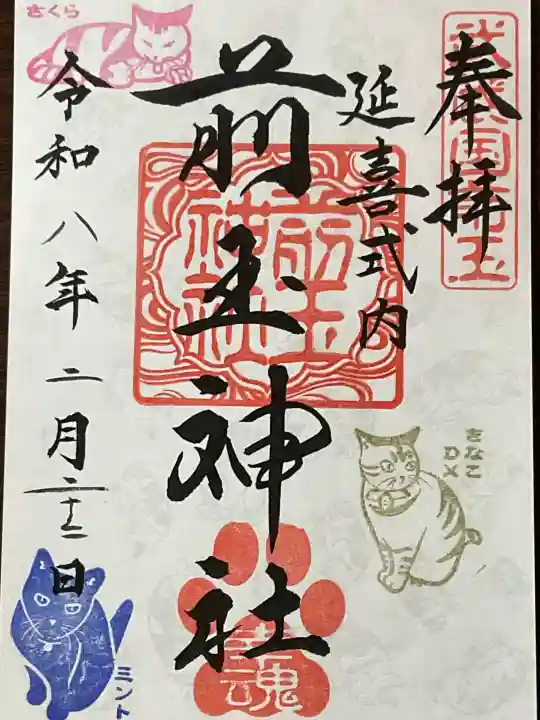 奉拝
武蔵国埼玉
延喜式内
前玉神社
前玉神社
幸魂
令和八年二月二十二日
さくら
きなこ
DX
ミント